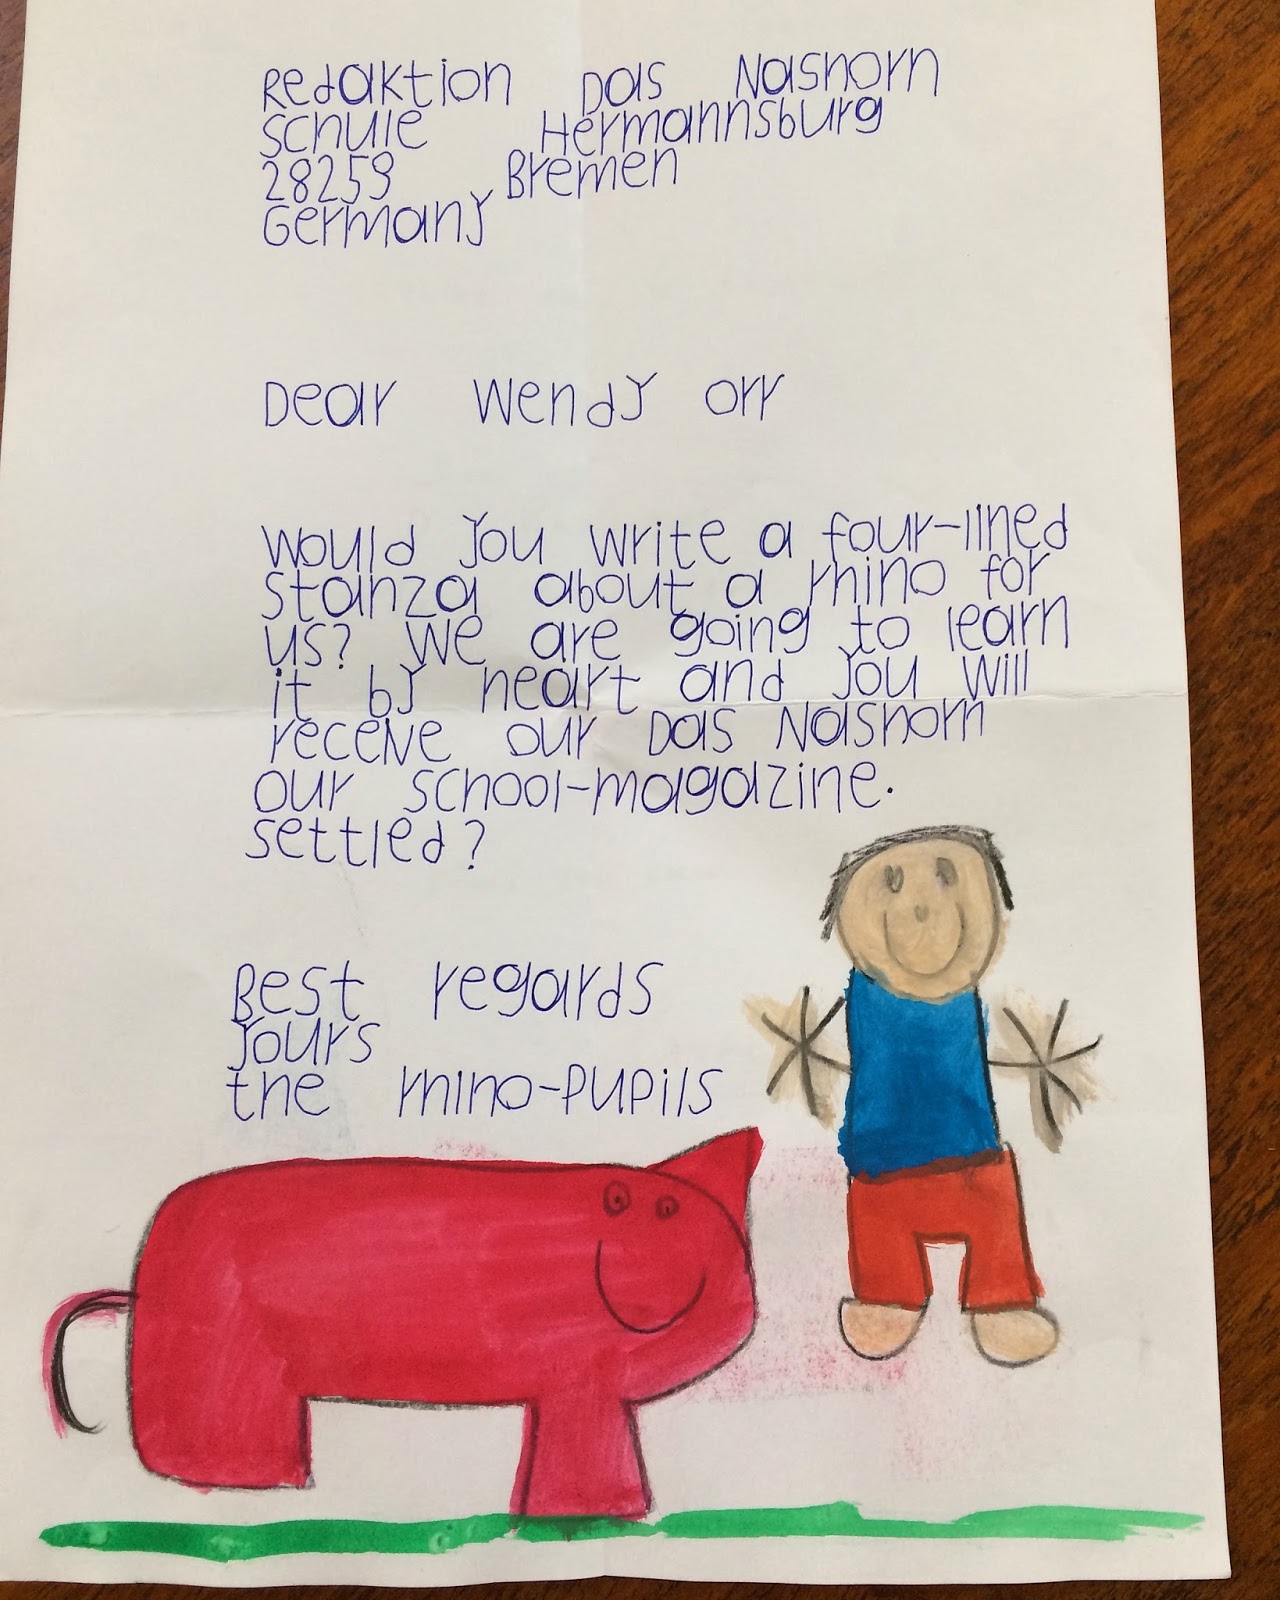 Redaktion Das Nashorn
Schule Hermannsburg
28259 Bremen
Germany
Dear Wendy Orr
Would you write a four-lined
stanza about a rhino for
us? We are going to learn
it by heart and you will
receive our Das Nashorn
our school-magazine.
Settled?
Best regards
yours
the rhino-pupils